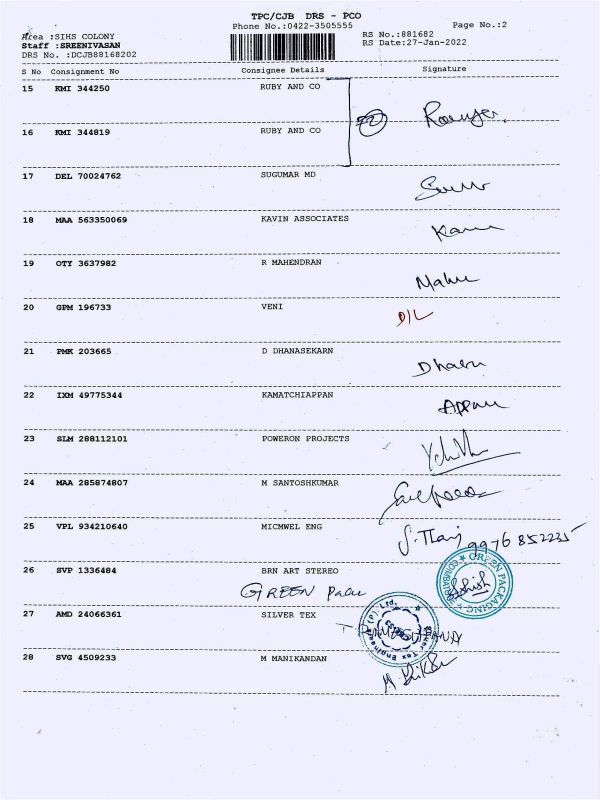 TPC/CJB DRS - PCO
Phone No.:0422-3505555
Page No.:2
Area :SIHS COLONY
RS No.:881682
Staff :SREENIVASAN
RS Date:27-Jan-2022
DRS No. :DCJB88168202
S No Consignment No Consignee Details Signature
15 KMI 344250 RUBY AND CO
16 KMI 344819 RUBY AND CO
17 DEL 70024762 SUGUMAR MD
18 MAA 563350069 KAVIN ASSOCIATES
19 OTY 3637982 R MAHENDRAN
20 GPM 196733 VENI
D/L
21 PMK 203665 D DHANASEKARN
22 IXM 49775344 KAMATCHIAPPAN
23 SLM 288112101 POWERON PROJECTS
24 MAA 285874807 M SANTOSHKUMAR
25 VPL 934210640 MICMWEL ENG
9976852235
26 SVP 1336484 BRN ART STEREO
GREEN PACKAGING
COIMBATORE
Ashish
GREEN
27 AMD 24066361 SILVER TEX
28 SVG 4509233 M MANIKANDAN